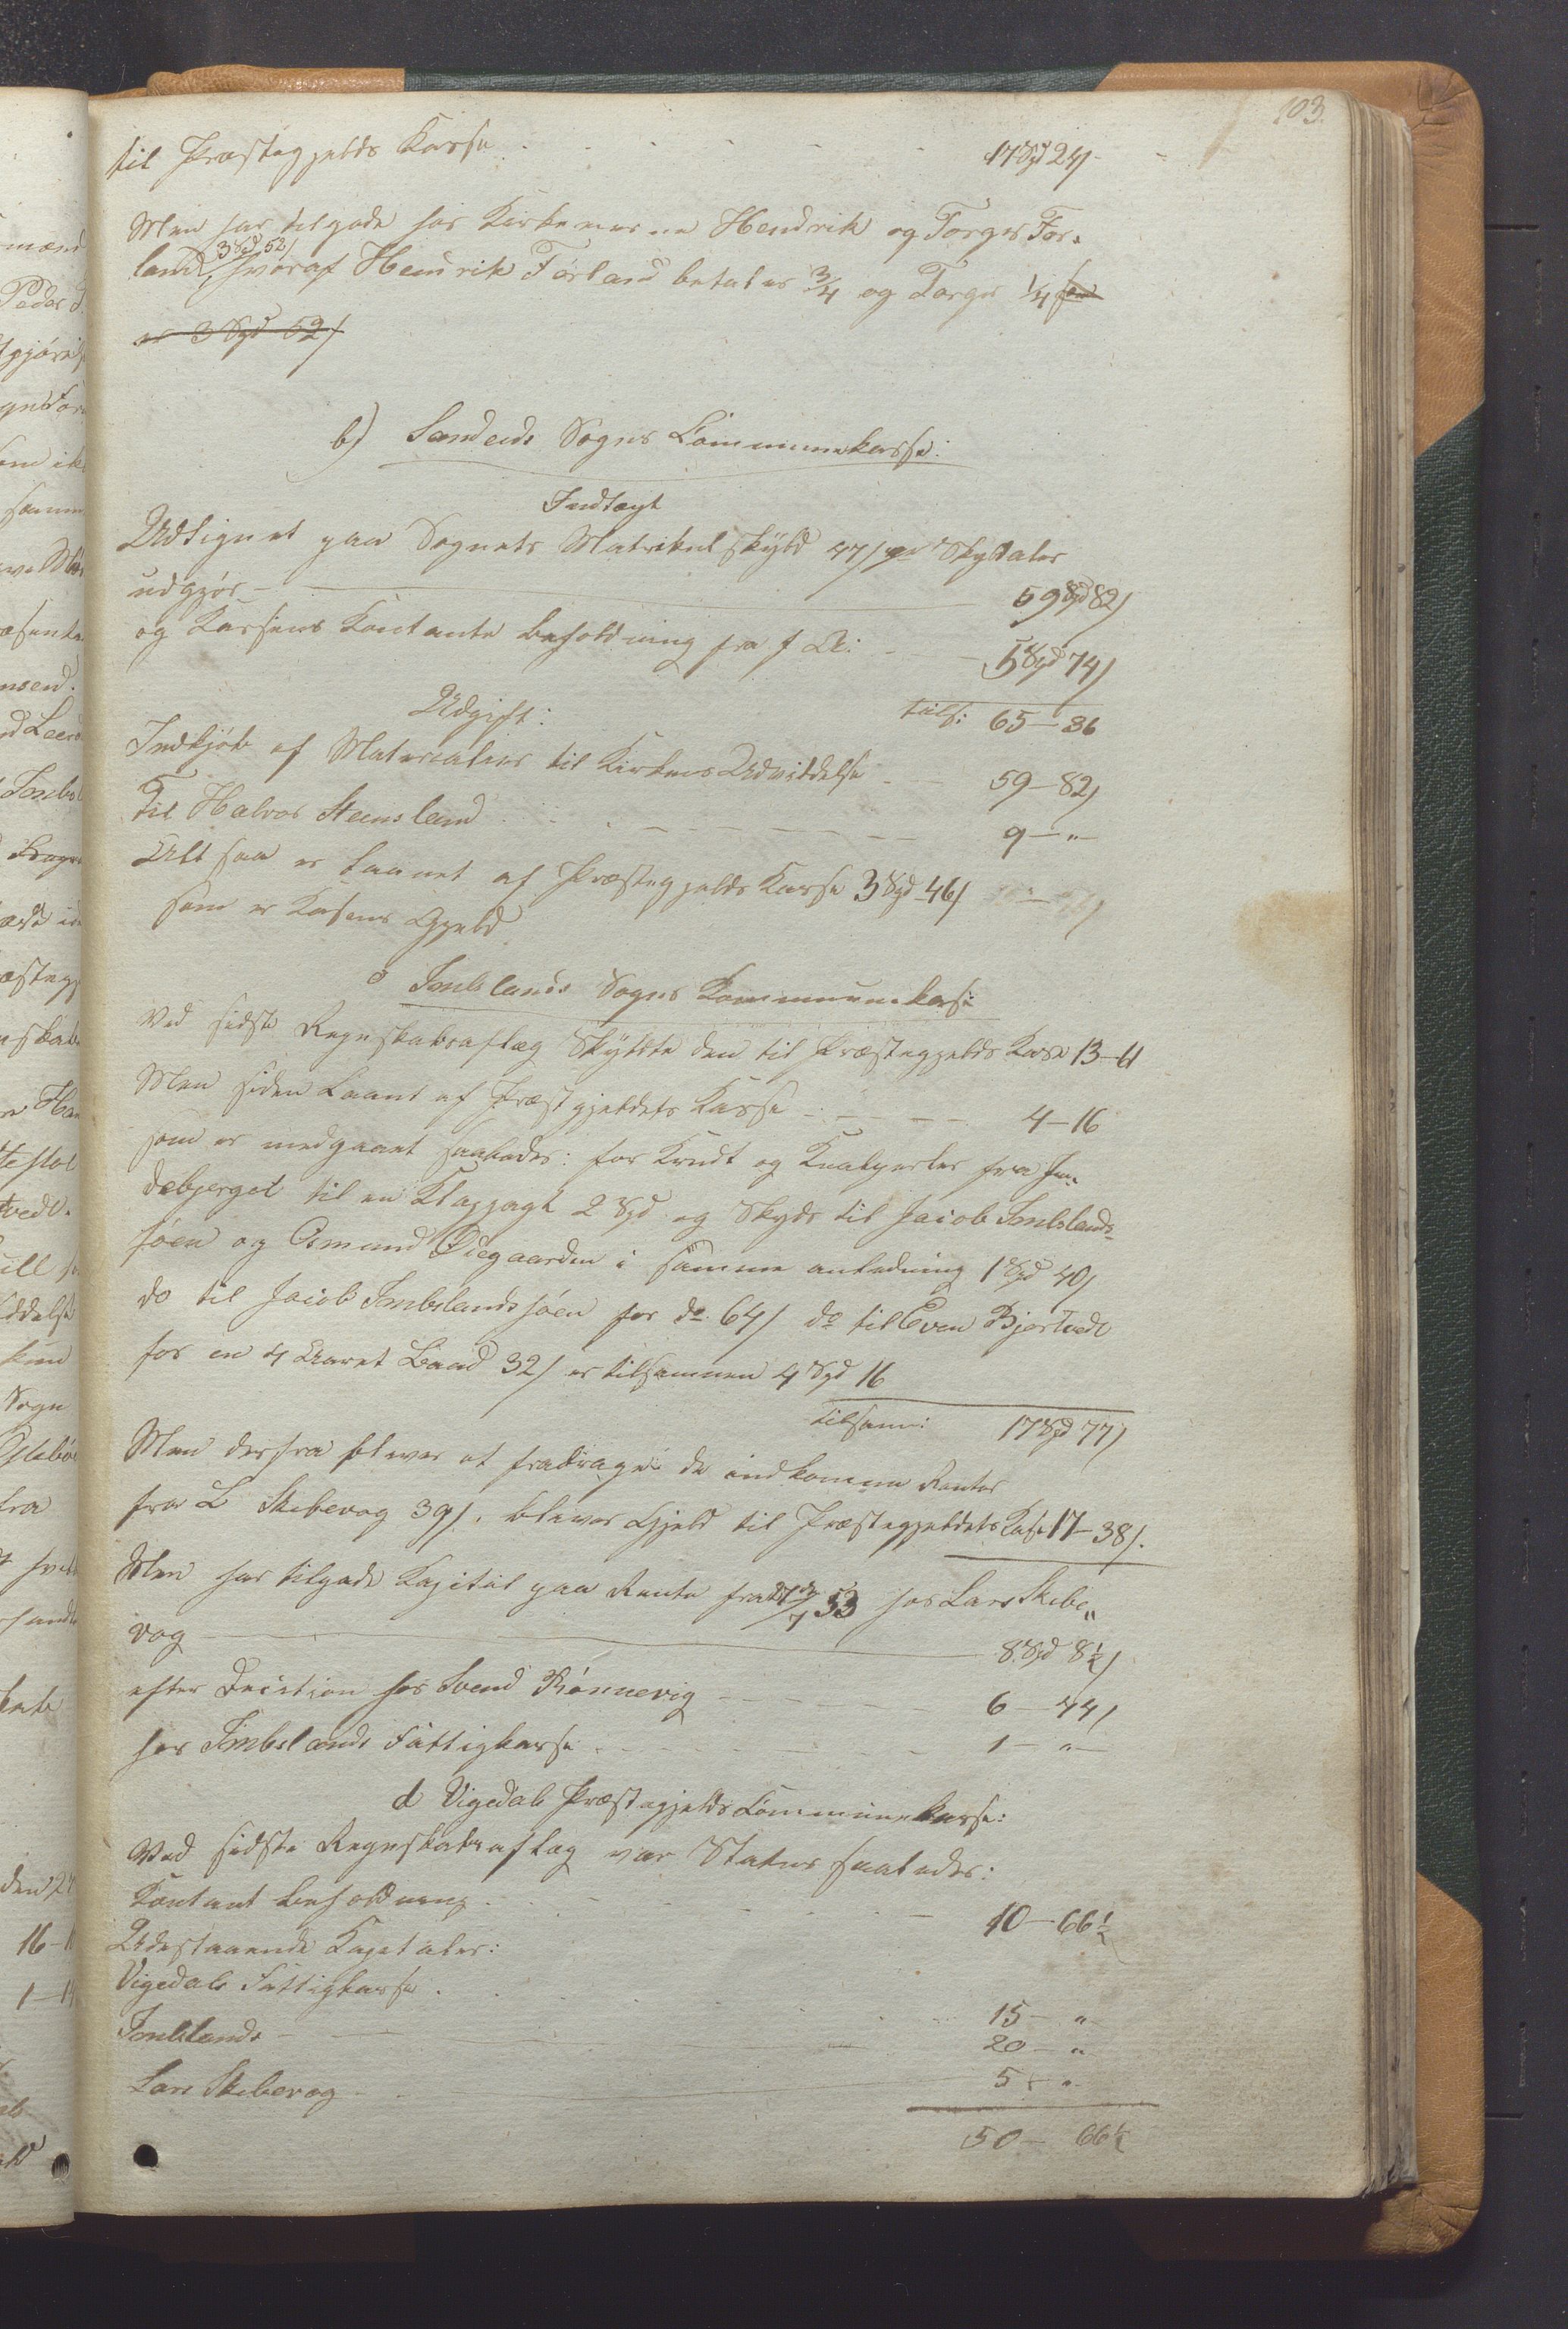 103.
til Præstegjelds Kasse . . . . . 17 Spd 24/-
Men har tilgode hos Kirkeverne Hendrik og Torger Før-
land, 3 Spd 52/ hvoraf Hendrik Førland betaler 3/4 og Torger 1/4
er 3 Spd 52/
b) Sandeids Sogns Communekasse:
Indtægt
Udlignet paa Sognets Matrikulskyld 47/ pr Skydaler
udgjør - 59 Spd 82/
og Kassens Kontante Beholdning fra f. A: - - 5 Spd 74/
tils: 65 - 36
Udgift:
Indkjøb af Materialier til Kirkens Udvidelse - - 59 - 82/
Til Halvor Steensland . . . - - - - 9 - "
Alt saa er laanet af Præstegjelds Kasse 3 Spd 46/
som er Kasens Gjeld
c Imslands Sogns Kommunekas:
Ved sidste Regnskabsaflæg Skyldte den til Præstegjelds Kase 13 - 61
Men siden Laant af Præstgjeldets Kasse - - - - 4 - 16
som er medgaaet saaledes: for Krudt og Knalperler fra
debjerget til en Klapjagt 2 Spd og Skyds til Jacob Imslands-
søen og Osmund Ødegaarden i samme anledning 1 Spd 40/
do til Jacob Imslandssøen for do 64/ do til Even Bjortvedt
for en 4 Aaret Baad 32/ er tilsammen 4 Spd 16
tilsam: 17 Spd 77/
Men derfra bliver at fradrage de indkomne Renter
fra L Skibevog 39/. bliver Gjeld til Præstegjeldets Kase 17 - 38/.
Men har tilgode Kapital paa Rente fra 7 53 hos Lars Skibe"
vog - 8 Spd 8½/
efter Decition hos Svend Rønnevig - - - - 6 - 44/
hos Imslands Fattigkasse . - - - - 1 - "
d Vigedals Præstegjelds Communekasse:
Ved sidste Regnskabsaflæg var Status saaledes:
Kontant Beholdning . . . - - 10 - 66½
Udestaaende Kapitaler:
Vigedals Fattigkasse . . . . 15 - "
Imslands - - 20 - "
Lars Skibevog - - 5 - "
50 - 66½